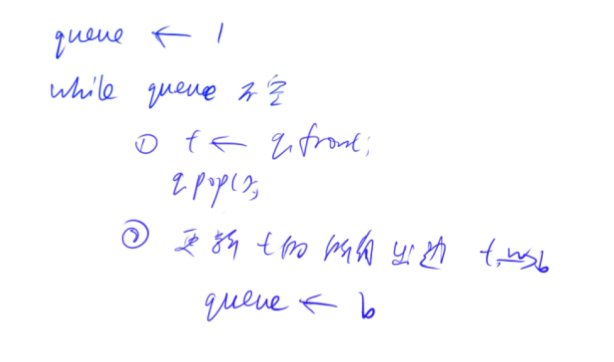 queue ← 1
while queue 不空
① t ← q.front;
q.pop();
② 更新t的所有出边 t w→ b
queue ← b